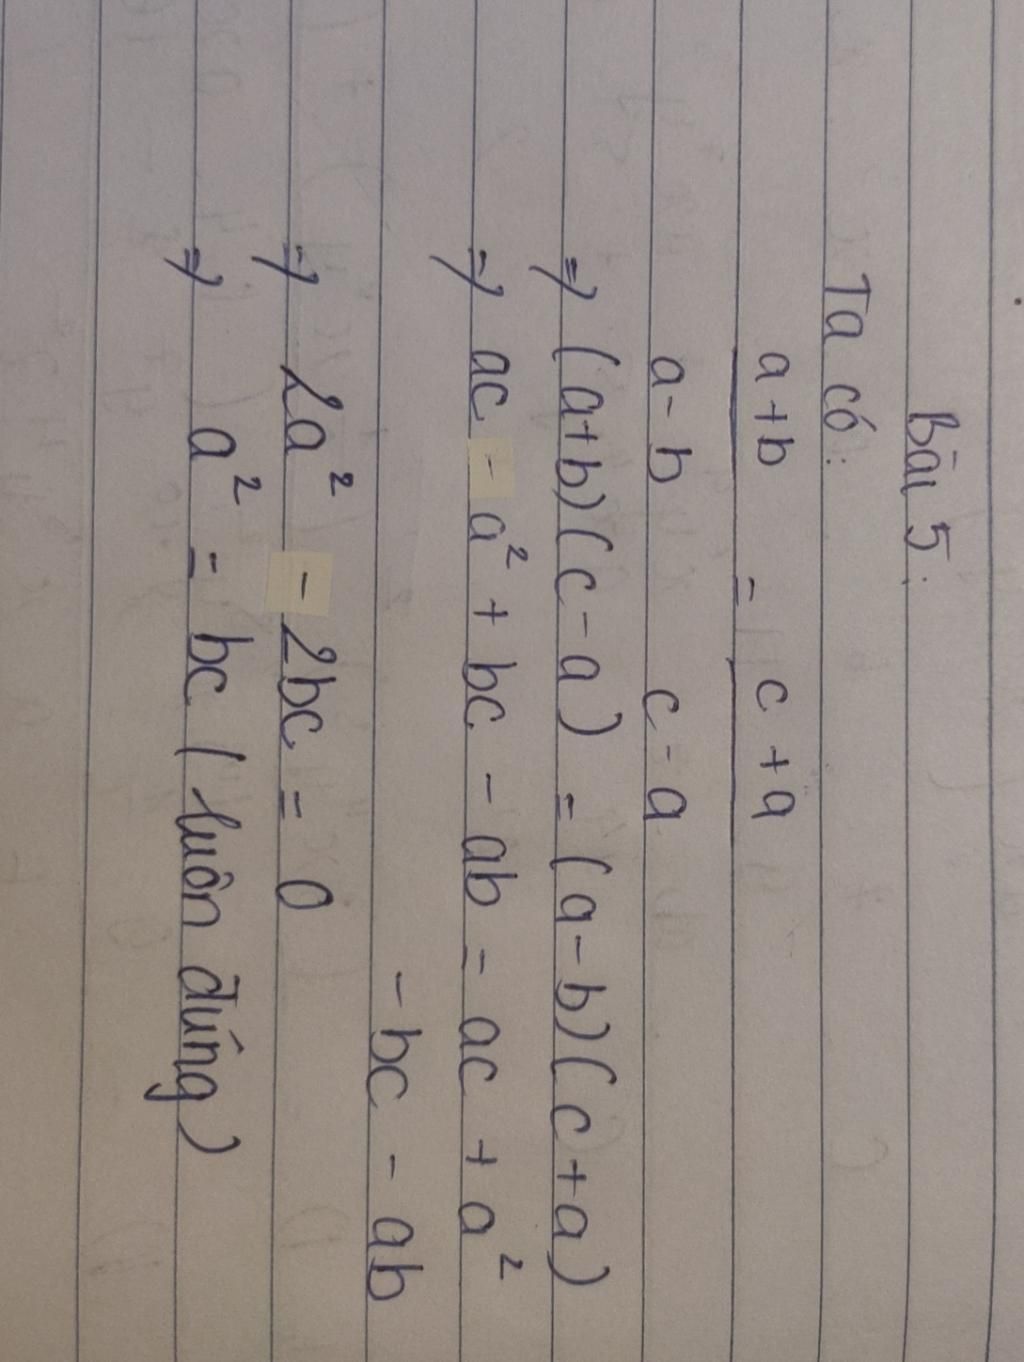 Bài 5:
Ta có:
a+b / a-b = c+a / c-a
=> (a+b)(c-a) = (a-b)(c+a)
=> ac - a² + bc - ab = ac + a²
- bc - ab
=> 2a² - 2bc = 0
=> a² = bc (luôn đúng)